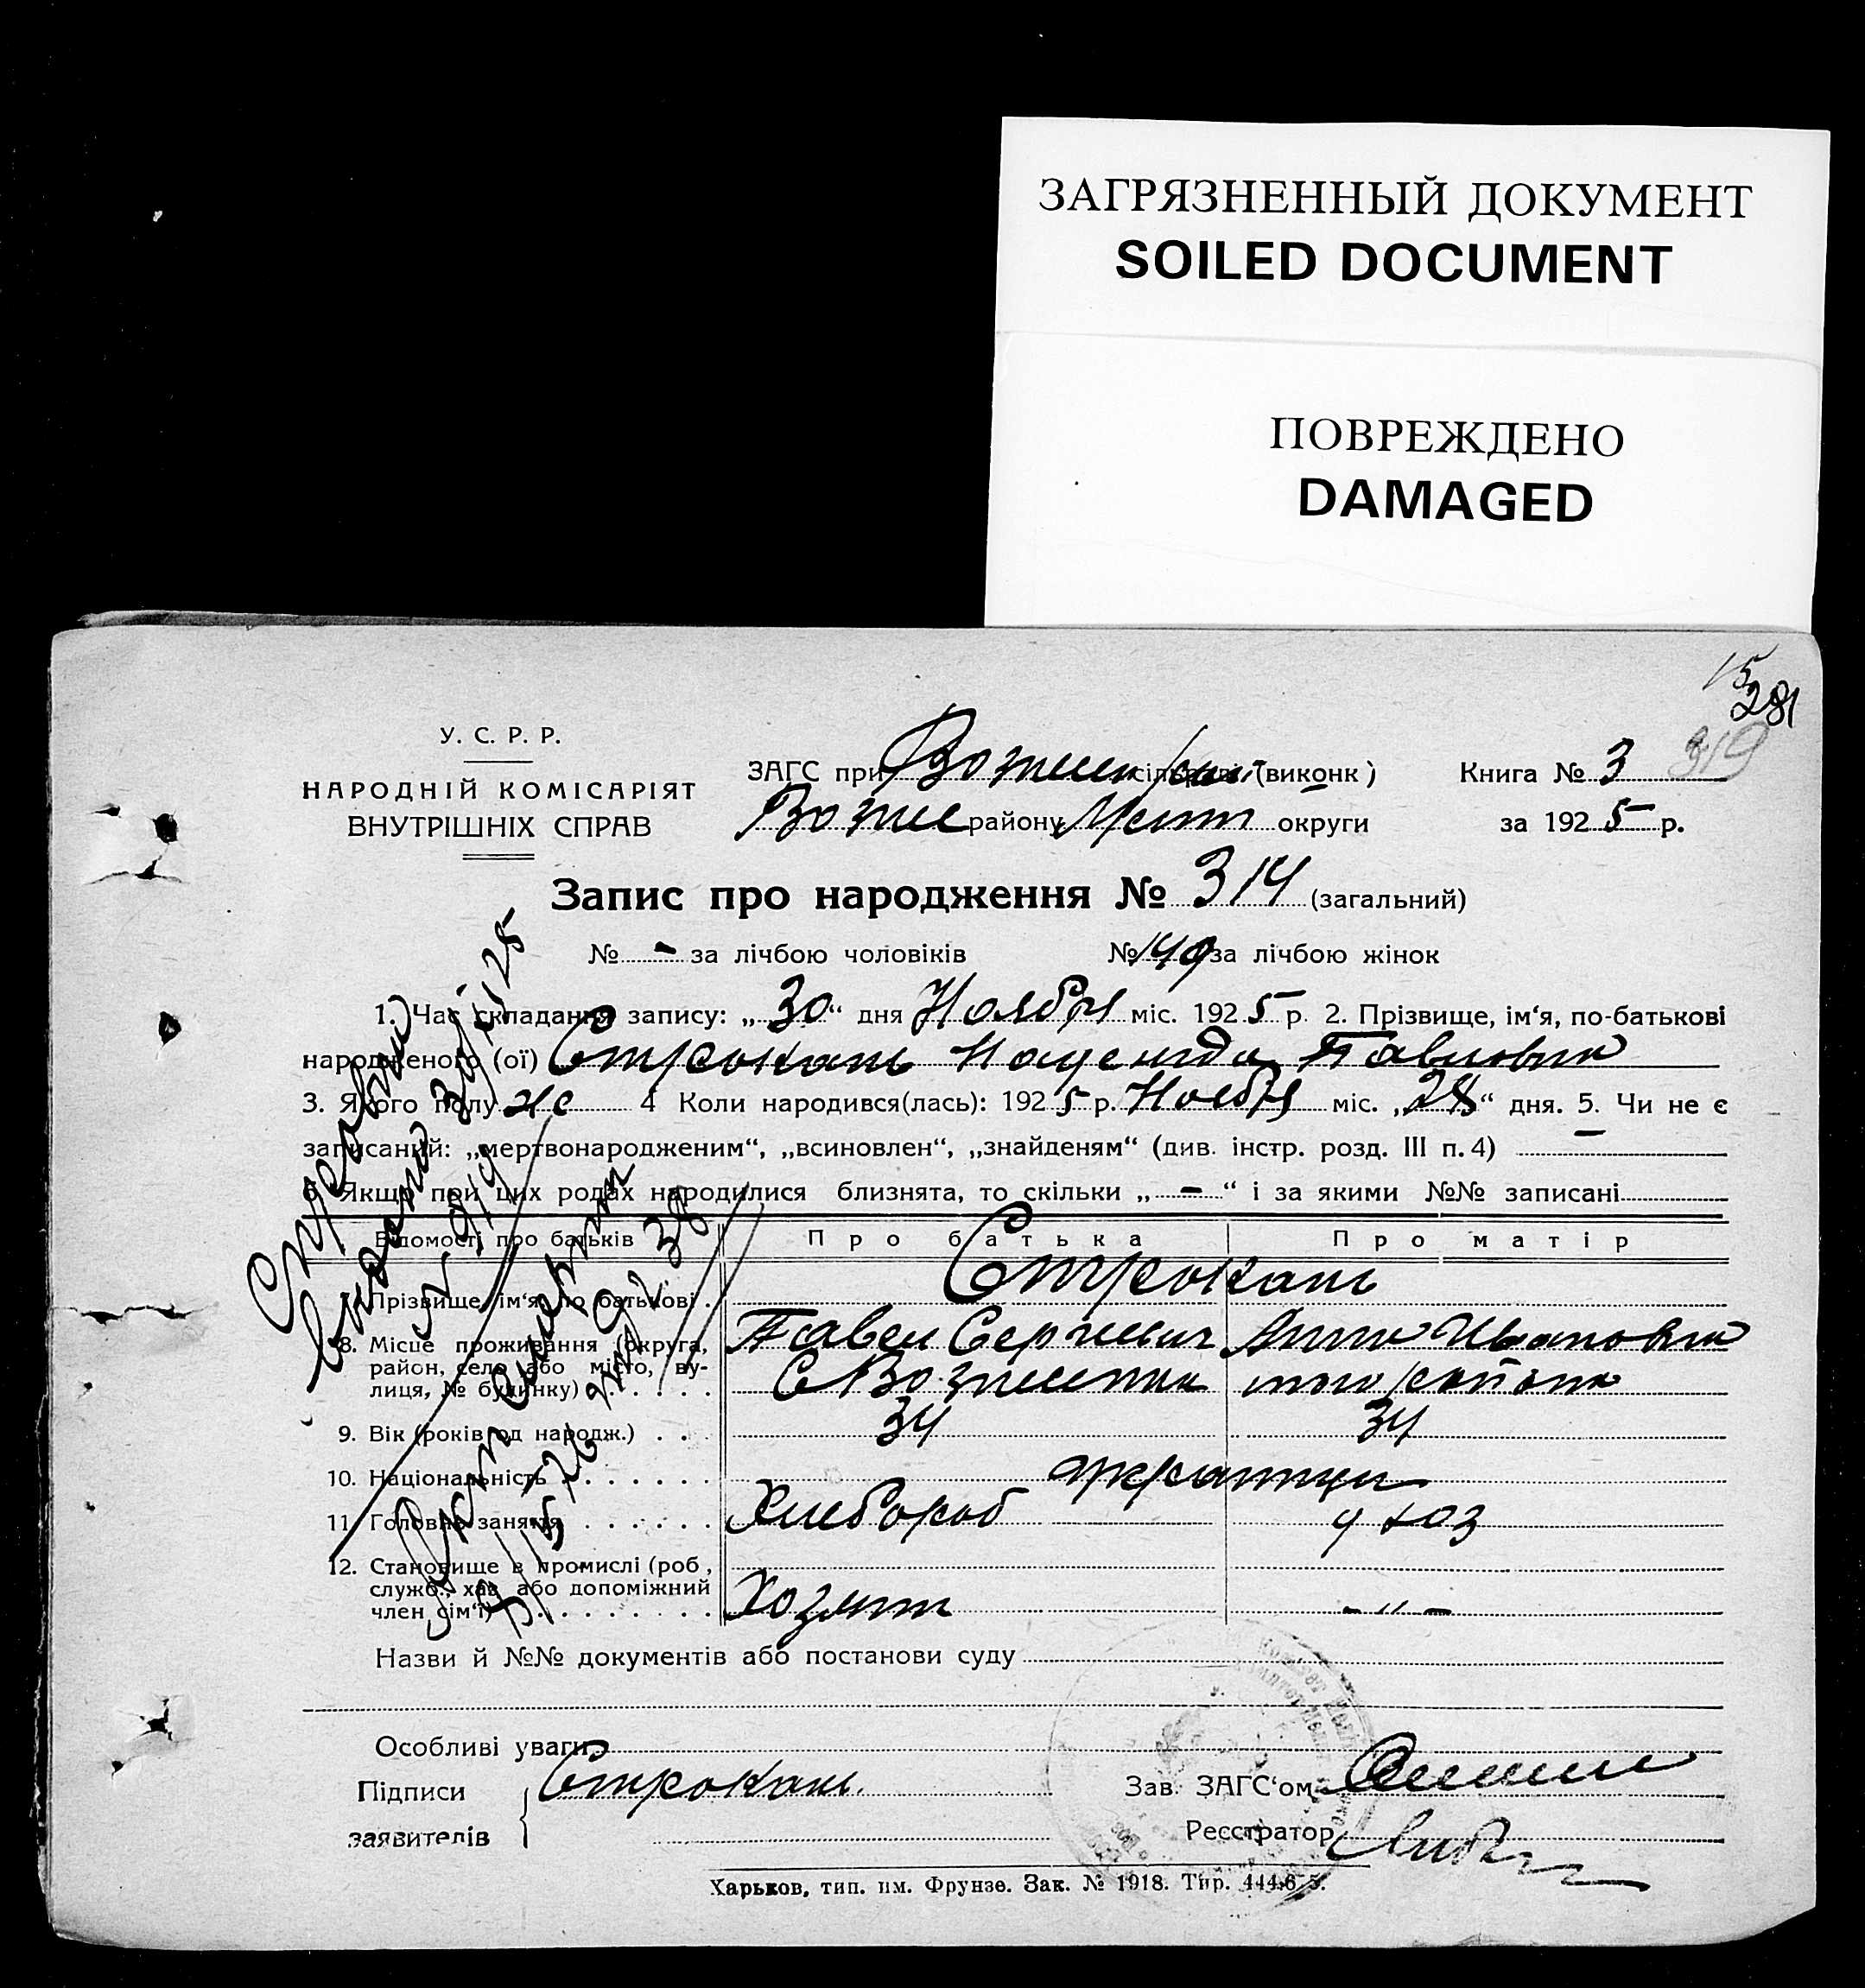 ЗАГРЯЗНЕННЫЙ ДОКУМЕНТ
SOILED DOCUMENT
ПОВРЕЖДЕНО
DAMAGED
15
281
319
У. С. Р. Р.
НАРОДНІЙ КОМІСАРІЯТ
ВНУТРІШНІХ СПРАВ
ЗАГС при (виконк)
Книга № 3
Вознес району Меліт округи
за 1925 р.
Запис про народження № 314 (загальний)
№ - за лічбою чоловіків № 149 за лічбою жінок
1. Час складання запису: „30“ дня Ноября міс. 1925 р. 2. Прізвище, ім‘я, по-батькові
народженого (ої) Строкань Надежда Павловна
3. Якого полу же 4 Коли народився(лась): 1925 р. Ноября міс. „28“ дня. 5. Чи не є
записаний: „мертвонародженим“, „всиновлен“, „знайденям“ (див. інстр. розд. III п. 4) —
6. Якщо при цих родах народилися близнята, то скільки „ - “ і за якими №№ записані
Відомості про батьків Про батька Про матір
7. Прізвище, ім‘я, по батькові . Строкань
Павел Сергеевич Анна Ивановна
8. Місце проживання (округа,
район, село або місто, ву-
лиця, № будинку) С Вознесенка
9. Вік (років од народж.) . . . 34 34
10. Національність . . . . . . . украинцы
11. Головне заняття . . . . . . Хлебороб у хоз
12. Становище в промислі (роб,
служб., хаз. або допоміжний
член сім‘ї) . . . . . . . . Хозяин - " -
Назви й №№ документів або постанови суду
Особливі уваги
Підписи Строкань
заявителів
Зав. ЗАГС‘ом
Реєстратор
Харьков, тип. им. Фрунзе. Зак. № 1918. Тир. 444.6-5.